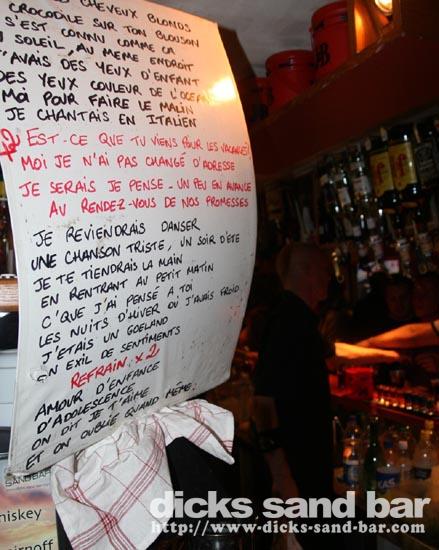 CHEVEUX BLONDS
CROCODILE SUR TON BLOUSON
S'EST CONNU COMME CA
SOLEIL, AU MEME ENDROIT
AVAIS DES YEUX D'ENFANT
DES YEUX COULEUR DE L'OCEAN
MOI POUR FAIRE LE MALIN
JE CHANTAIS EN ITALIEN
EST-CE QUE TU VIENS POUR LES VACANCES
MOI JE N'AI PAS CHANGÉ D'ADRESSE
JE SERAIS JE PENSE - UN PEU EN AVANCE
AU RENDEZ-VOUS DE NOS PROMESSES
JE REVIENDRAIS DANSER
UNE CHANSON TRISTE, UN SOIR D'ÉTÉ
JE TE TIENDRAIS LA MAIN
EN RENTRANT AU PETIT MATIN
C'QUE J'AI PENSÉ A TOI
LES NUITS D'HIVER OÙ J'AVAIS FROID
J'ETAIS UN GOELAND
EN EXIL DE SENTIMENTS
REFRAIN x2
AMOUR D'ENFANCE
D'ADOLESCENCE
ON DIT JE T'AIME
ET ON OUBLIE QUAND MÊME.
SAND BAR
whiskey
smirnoff
dicks sand bar
http://www.dicks-sand-bar.com